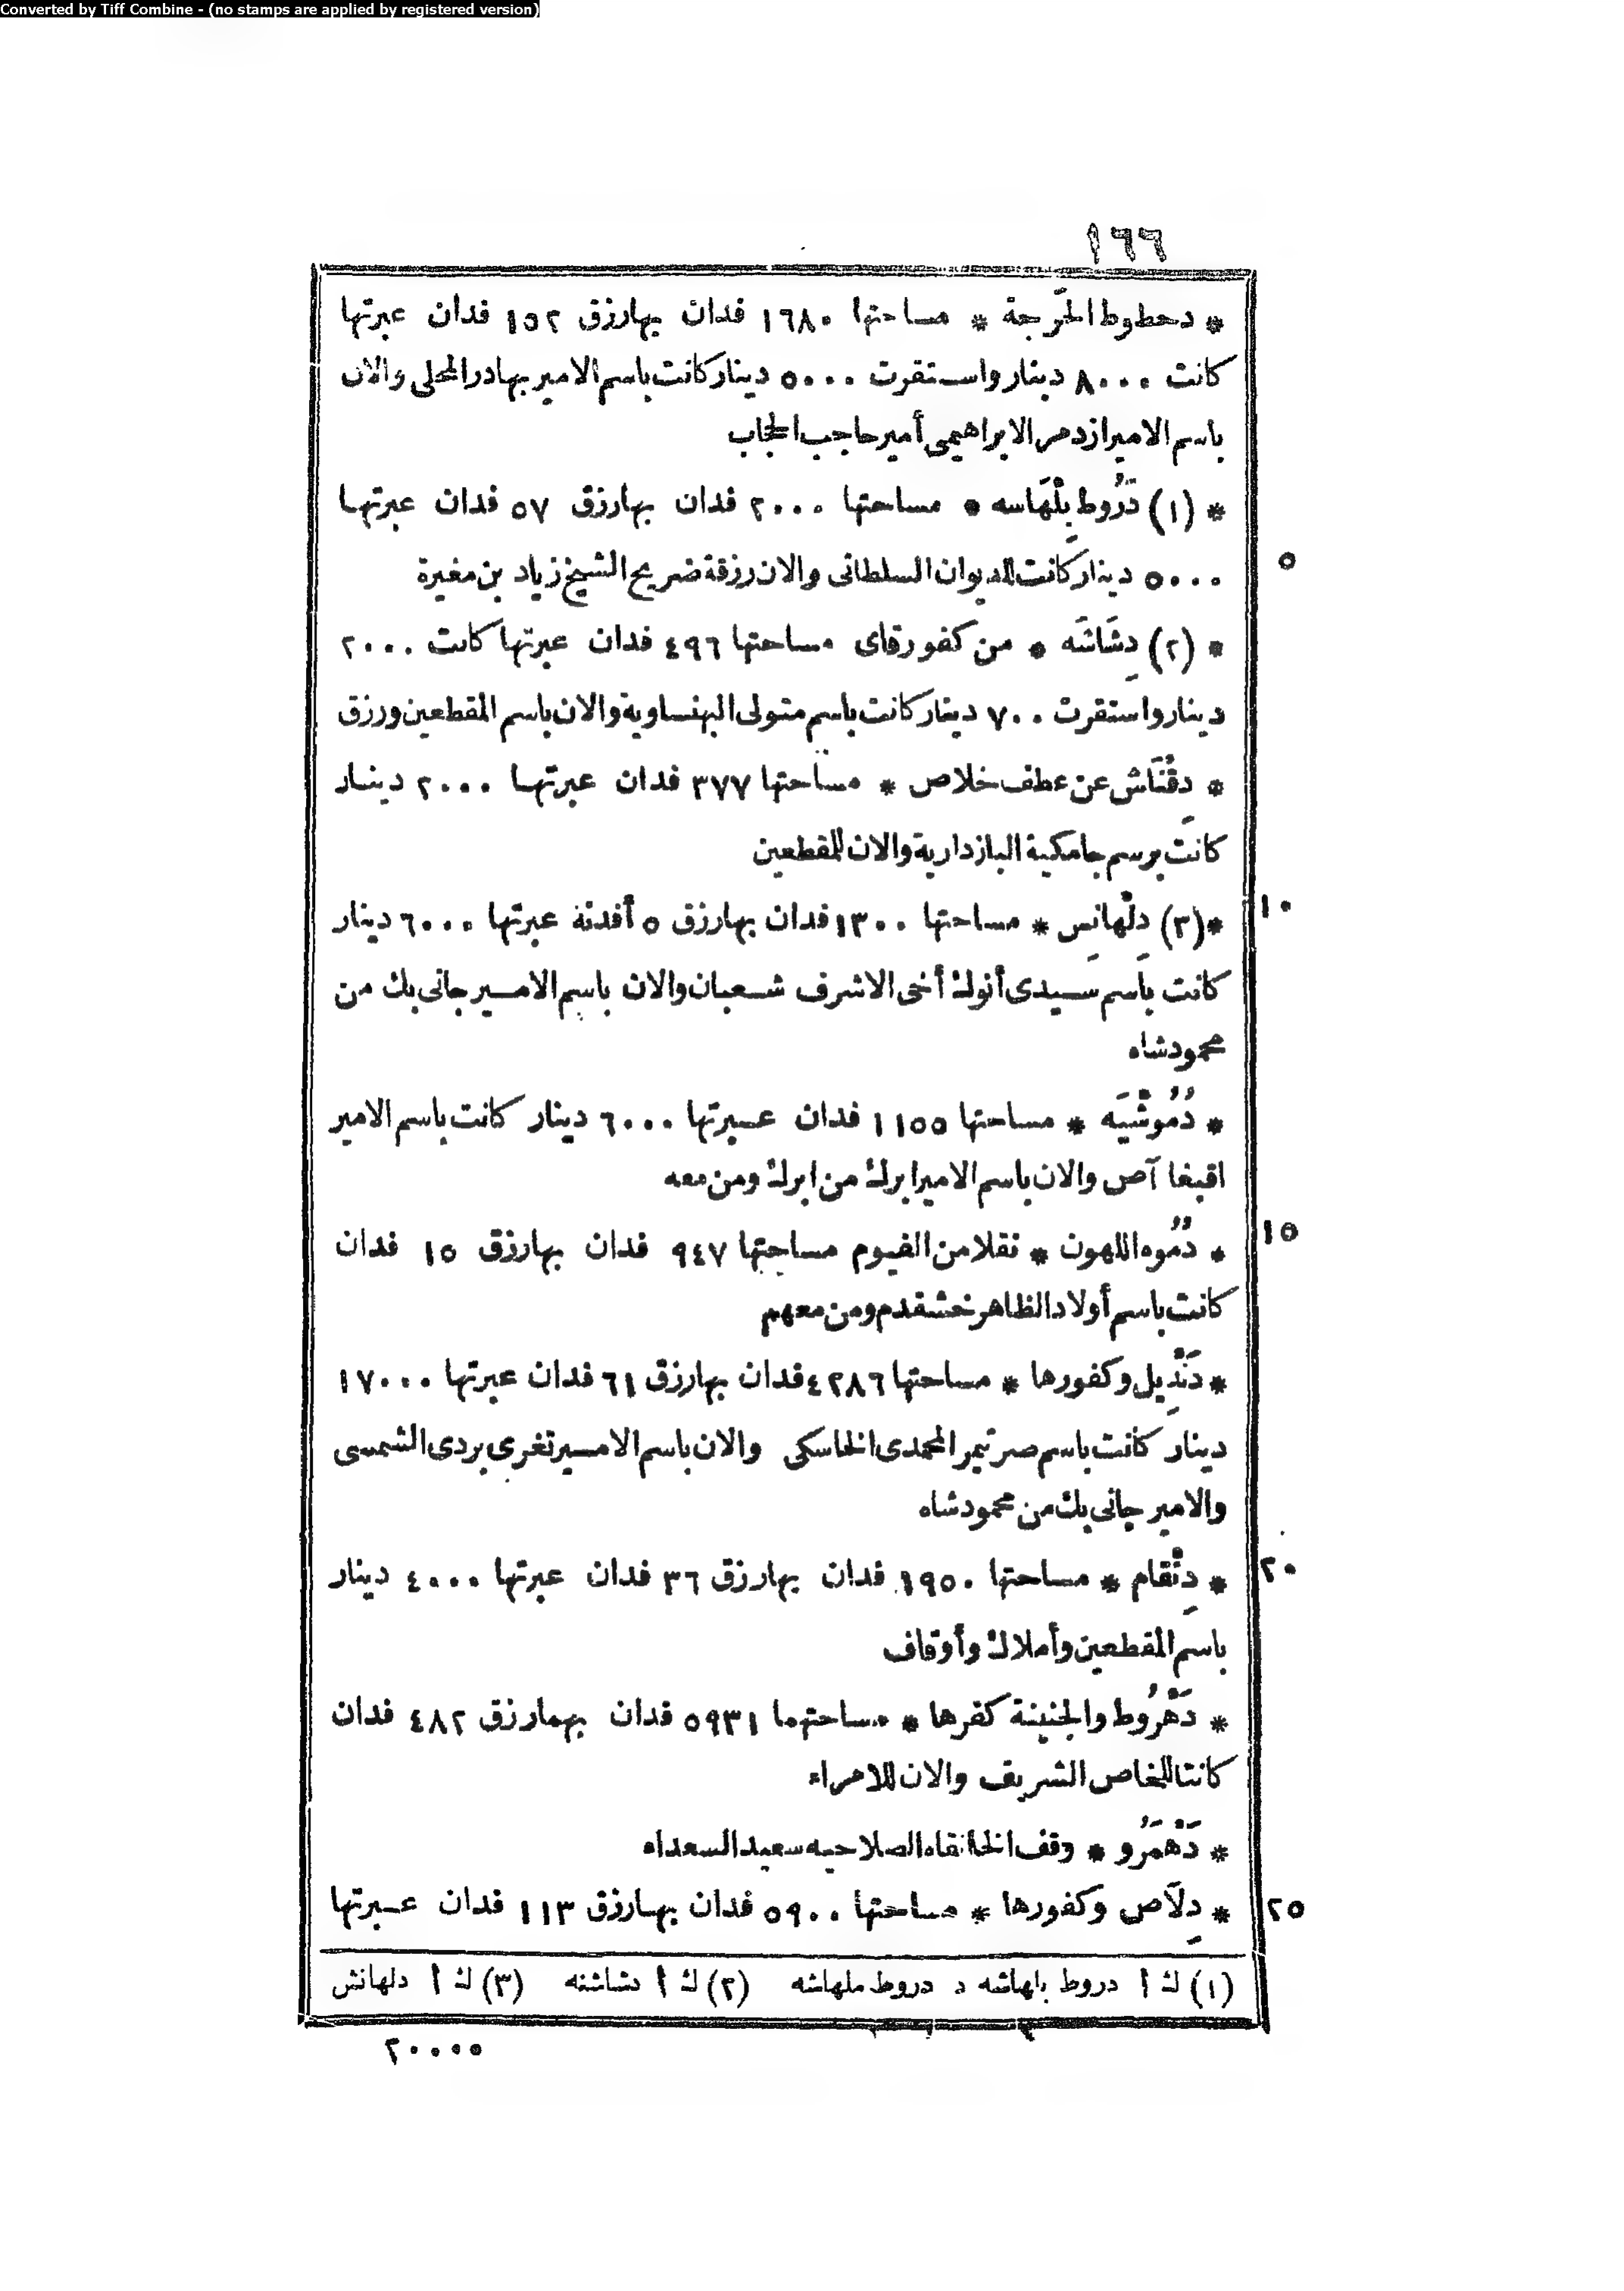 Converted by Tiff Combine - (no stamps are applied by registered version)
١٦٦
* دحطوط الحَرجة * مساحتها ١٦٨٠ فدان بهارزق ١٥٢ فدان عبرتها
كانت ٨٠٠٠ دينار واستقرت ٥٠٠٠ دينار كانت باسم الامير بهادر المحلى والان
باسم الامير ازدمر الابراهيمى أمير حاجب الحجاب
* (١) دَرُوط بِلْهَاسه * مساحتها ٢٠٠٠ فدان بهارزق ٥٧ فدان عبرتها
٥
٥٠٠٠ دينار كانت للديوان السلطانى والان رزقة ضريح الشيخ زياد بن مغيرة
* (٢) دِشَاشَه * من كفور قاى مساحتها ٤٩٦ فدان عبرتها كانت ٢٠٠٠
دينار واستقرت ٧٠٠ دينار كانت باسم متولى البهنساوية والان باسم المقطعين ورزق
* دِقْنَاش عن عطف خلاص * مساحتها ٣٧٧ فدان عبرتها ٢٠٠٠ دينار
كانت برسم جامكية البازدارية والان للمقطعين
١٠
* (٣) دِلْهانِس * مساحتها ١٣٠٠ فدان بهارزق ٥ أفدنة عبرتها ٦٠٠٠ دينار
كانت باسم سيدى أنوك أخى الاشرف شعبان والان باسم الامير جانى بك من
محمودشاه
* دُمُوشْيَه * مساحتها ١١٥٥ فدان عبرتها ٦٠٠٠ دينار كانت باسم الامير
اقبغا آص والان باسم الامير ابرك من ابرك ومن معه
١٥
* دُمُوه اللهون * نقلا من الفيوم مساحتها ٩٤٧ فدان بهارزق ١٥ فدان
كانت باسم أولاد الظاهر خشقدم ومن معهم
* دَنْدِيل وكفورها * مساحتها ٤٢٨٦ فدان بهارزق ٦١ فدان عبرتها ١٧٠٠٠
دينار كانت باسم صرتمر المحمدى الخاسكى والان باسم الامير تغرى بردى الشمسى
والامير جانى بك من محمودشاه
٢٠
* دِنْقام * مساحتها ١٩٥٠ فدان بهارزق ٣٦ فدان عبرتها ٤٠٠٠ دينار
باسم المقطعين وأملاك وأوقاف
* دَهْرُوط والجنينة كفرها * مساحتهما ٥٩٣١ فدان بهمارزق ٤٨٢ فدان
كانتا للخاص الشريف والان للامراء
* دَهْمَرُو * وقف الخانقاه الصلاحيه سعيد السعداء
٢٥
* دِلَاص وكفورها * مساحتها ٥٩٠٠ فدان بهارزق ١١٣ فدان عبرتها
(١) ك أ دروط بلهاشه د دروط ملهاشه (٢) ك أ دشاشنه (٣) ك أ دلهانش
٢٠٠٠٠